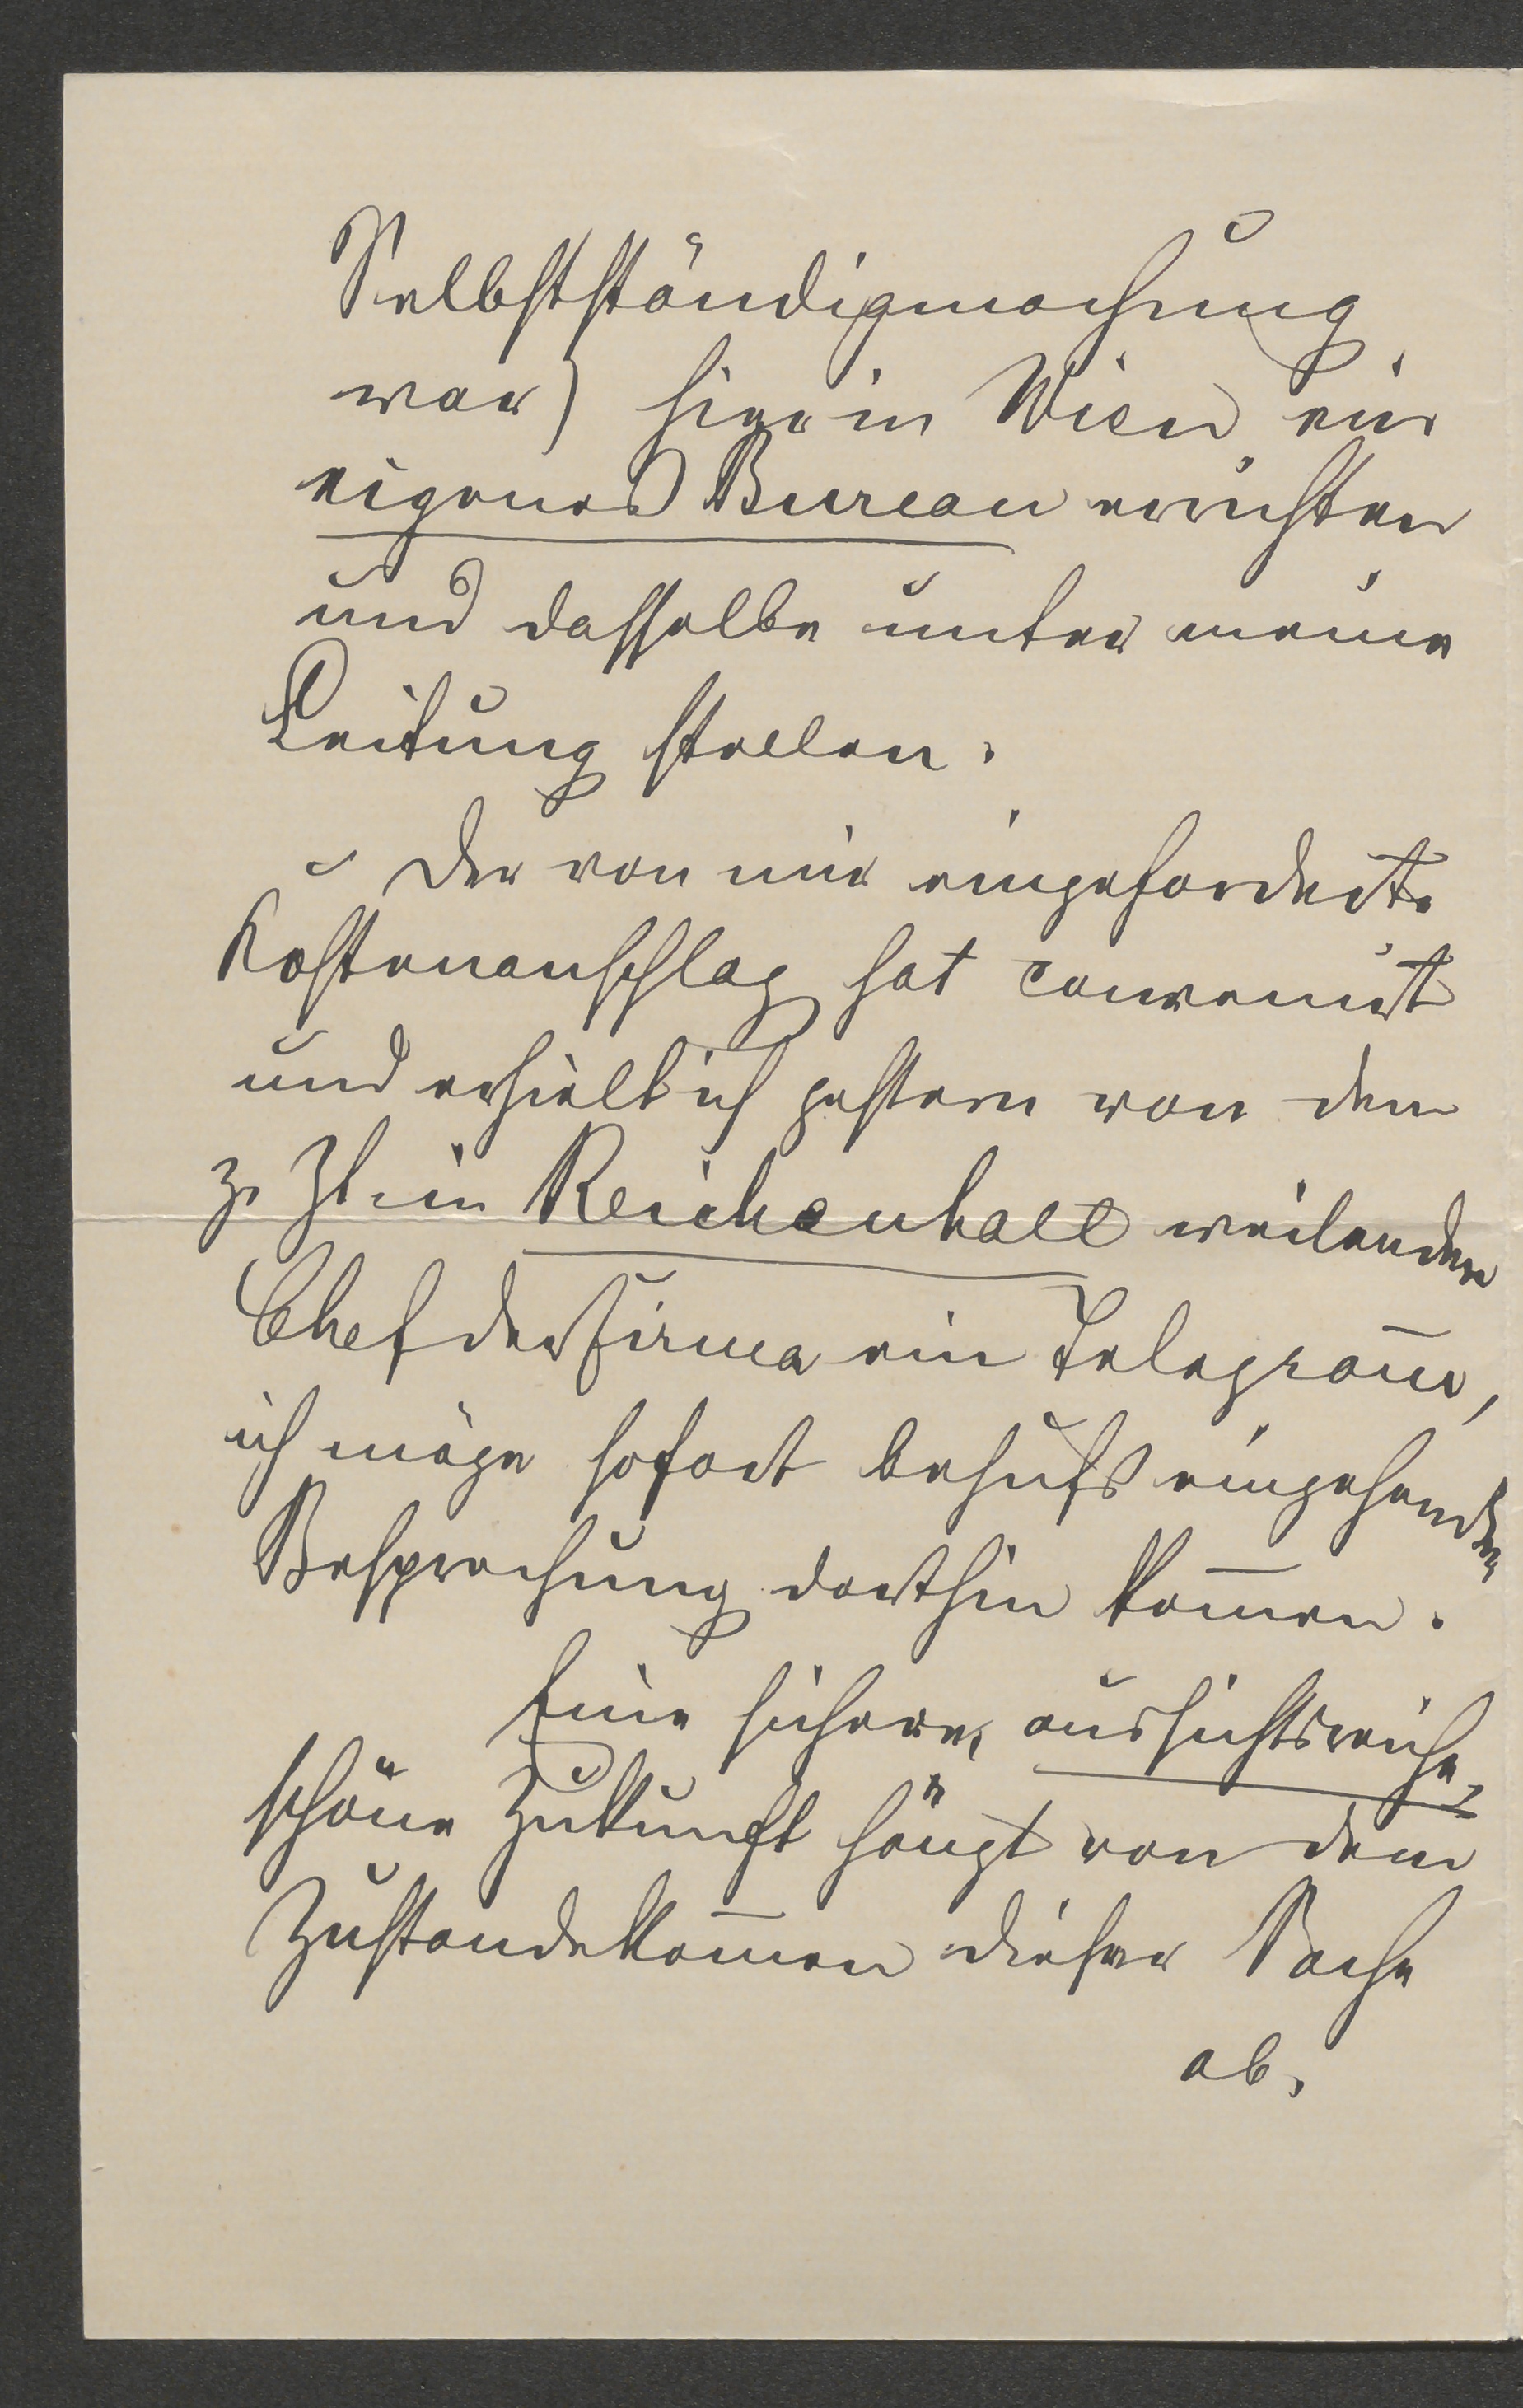 Selbstständigmachung
war) hier in Wien ein
eigenes Bureau errichten
und dasselbe unter meine
Leitung stellen.
Der von mir eingeforderte
Kostenanschlag hat convenirt
und erhielt ich gestern von dem
z. Zt. in Reichenhall weilenden
Chef der Firma ein Telegram̅,
ich möge sofort behufs eingehender
Besprechung dorthin kom̅en.
Eine sichere, aussichtsreiche,
schöne Zukunft hängt von dem
Zustandekom̅en dieser Sache
ab.